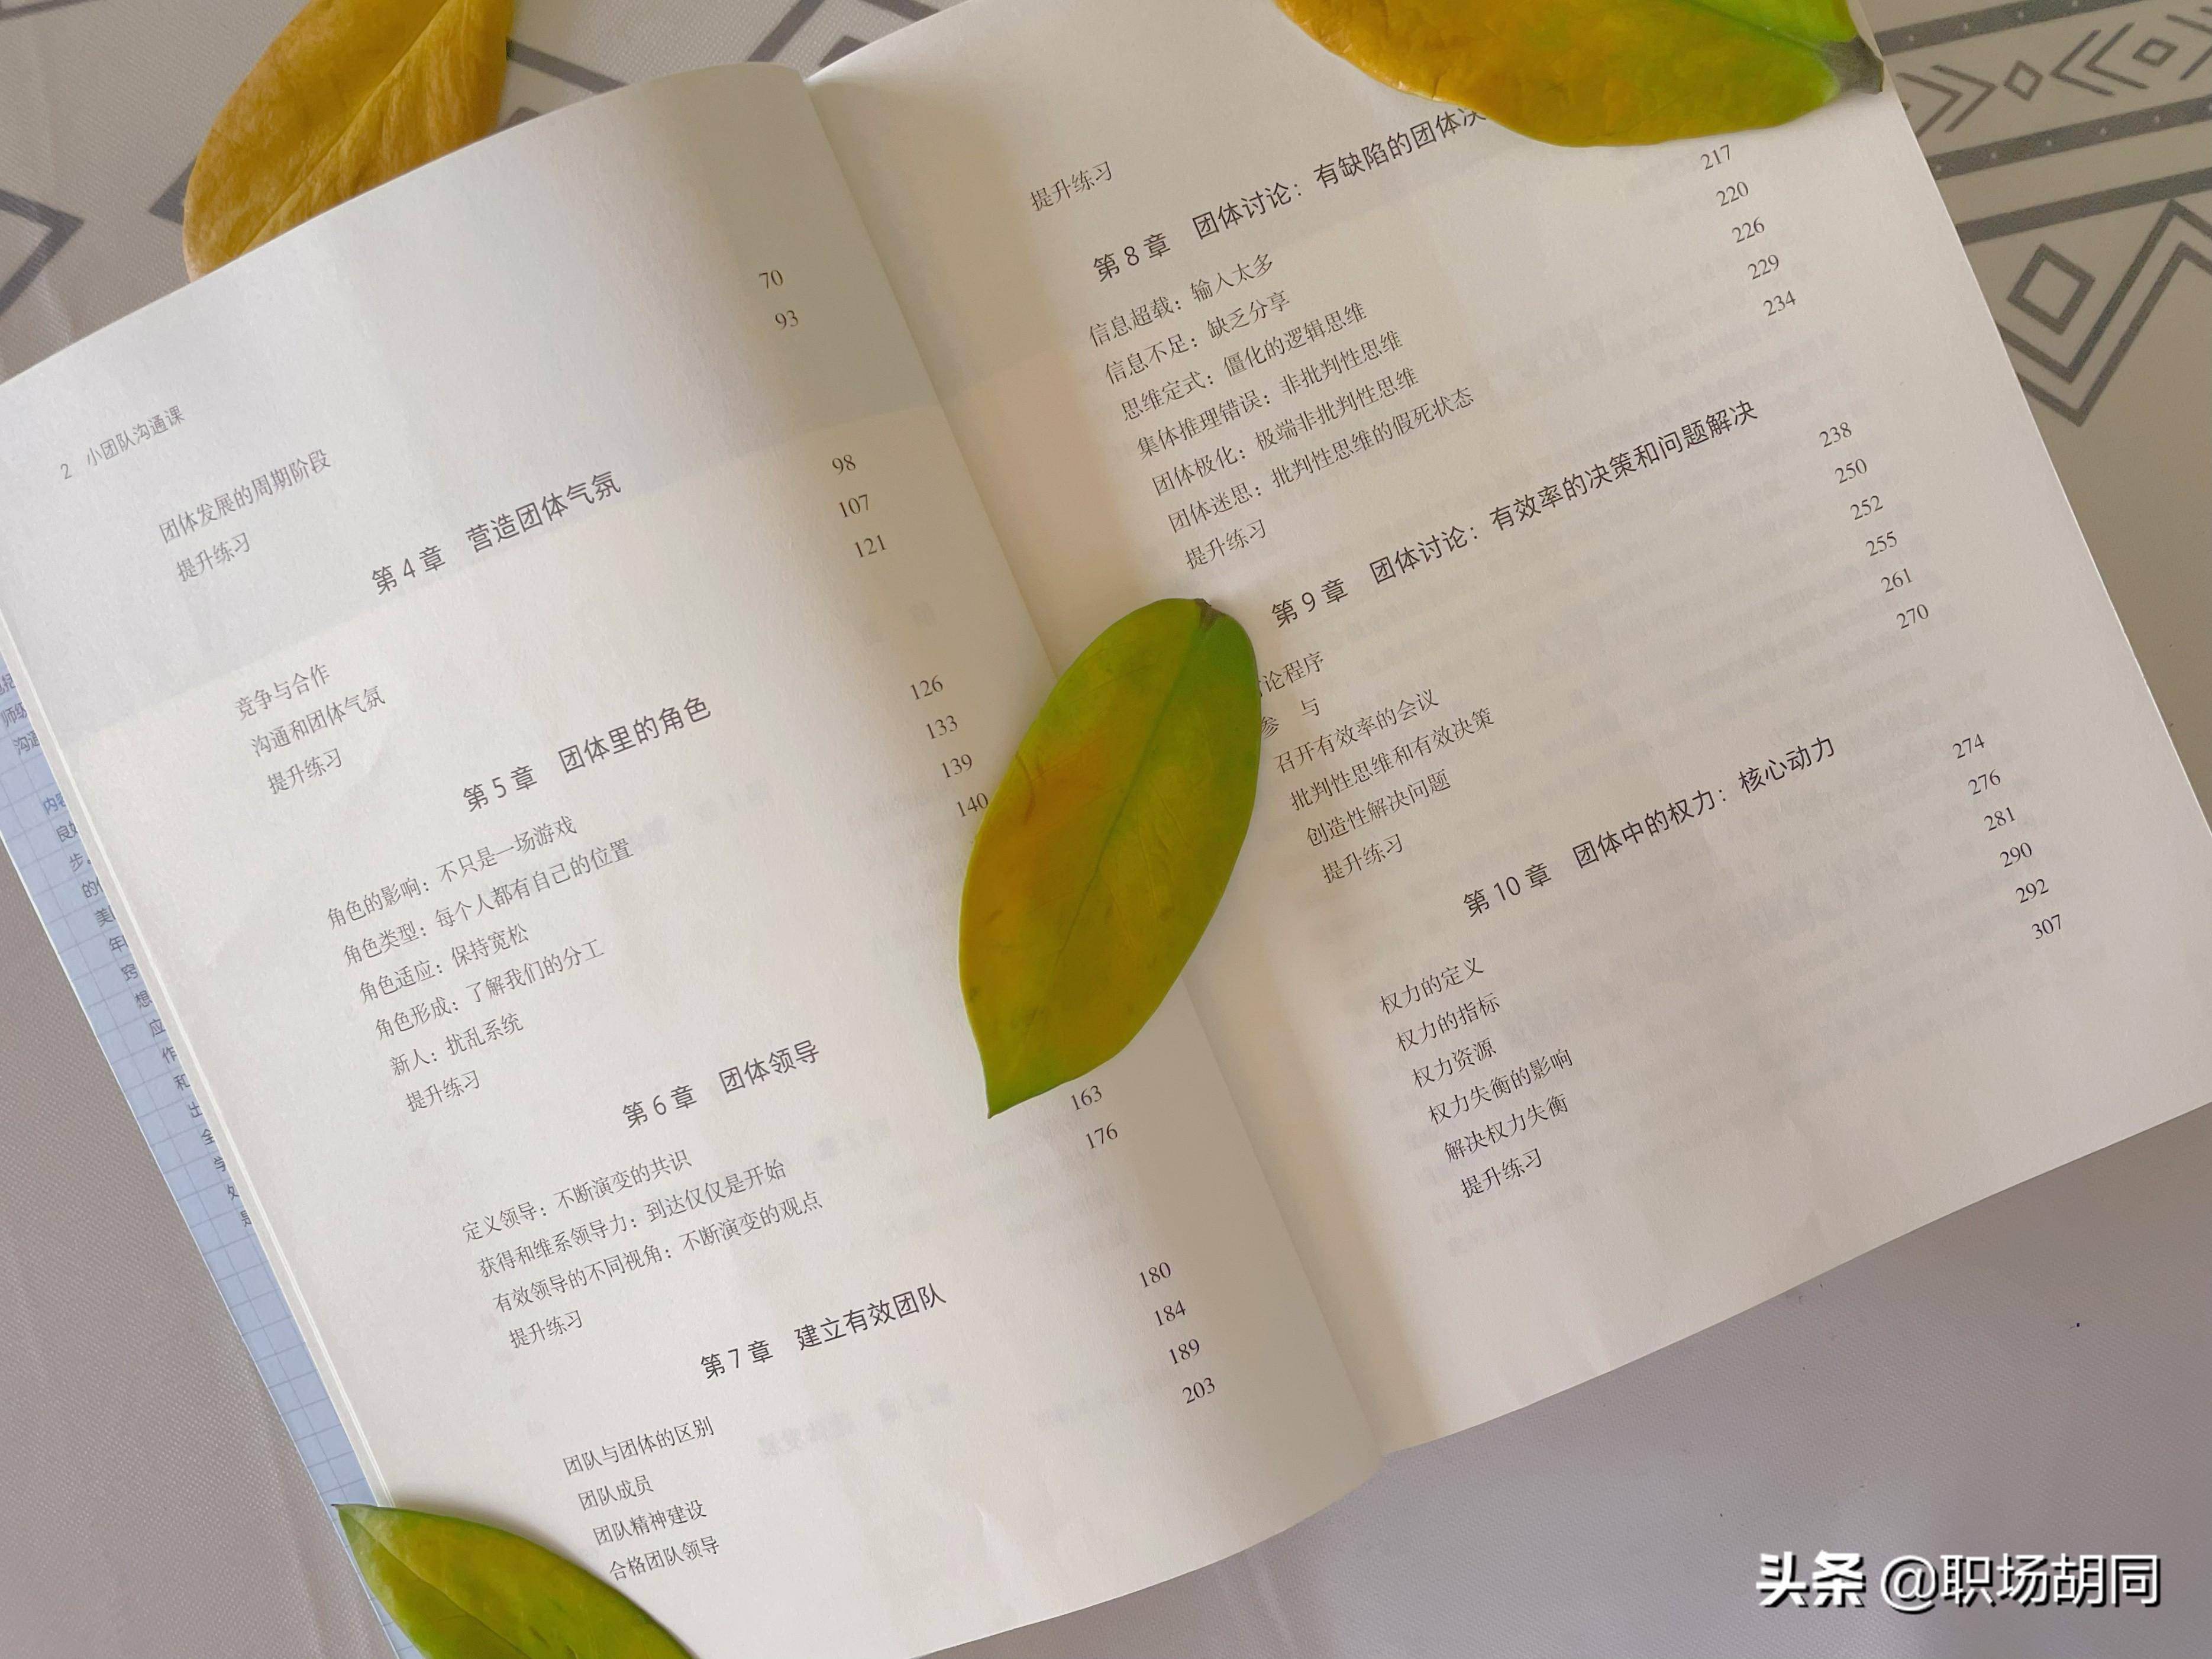 2 小团队沟通课
团体发展的周期阶段 70
提升练习 93
第4章 营造团体气氛
竞争与合作 98
沟通和团体气氛 107
提升练习 121
第5章 团体里的角色
角色的影响：不只是一场游戏 126
角色类型：每个人都有自己的位置 133
角色适应：保持宽松 139
角色形成：了解我们的分工 140
新人：扰乱系统
提升练习
第6章 团体领导
定义领导：不断演变的共识
获得和维系领导力：到达仅仅是开始
有效领导的不同视角：不断演变的观点 163
提升练习 176
第7章 建立有效团队
团队与团体的区别 180
团队成员 184
团队精神建设 189
合格团队领导 203
提升练习
第8章 团体讨论：有缺陷的团体决
信息超载：输入太多
信息不足：缺乏分享
思维定式：僵化的逻辑思维 217
集体推理错误：非批判性思维 220
团体极化：极端非批判性思维 226
团体迷思：批判性思维的假死状态 229
提升练习 234
第9章 团体讨论：有效率的决策和问题解决
论程序 238
参 与 250
召开有效率的会议 252
批判性思维和有效决策 255
创造性解决问题 261
提升练习 270
第10章 团体中的权力：核心动力
权力的定义 274
权力的指标 276
权力资源 281
权力失衡的影响 290
解决权力失衡 292
提升练习 307
头条 @职场胡同